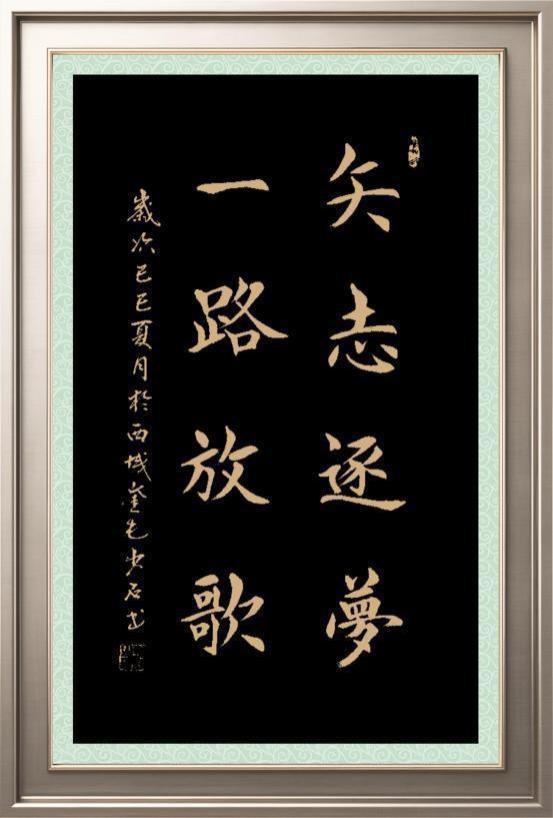 矢志逐夢
一路放歌
歲次己巳夏月於西域金毛少石書